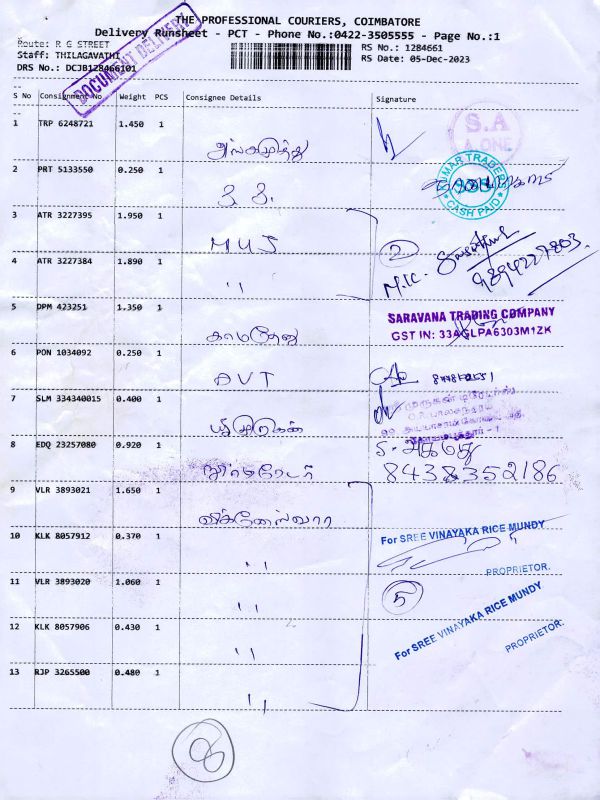 THE PROFESSIONAL COURIERS, COIMBATORE
Delivery Runsheet - PCT - Phone No.:0422-3505555 - Page No.:1
Route: R G STREET
RS No.: 1284661
Staff: THILAGAVATHI
RS Date: 05-Dec-2023
DRS No.: DCJB128466101
DOCUMENT DELIVERY
S No Consignment No Weight PCS Consignee Details Signature
1 TRP 6248721 1.450 1 அங்கமுத்து
S.A
A.ONE
2 PRT 5133550 0.250 1
CASH PAID
3 ATR 3227395 1.950 1 MUS
2
4 ATR 3227384 1.890 1 ''
M.K.
9894227803
5 DPM 423251 1.350 1 காமதேனு
SARAVANA TRADING COMPANY
GST IN: 33AGLPA6303M1ZK
6 PON 1034092 0.250 1 AVT
7 SLM 334340015 0.400 1
8 EDQ 23257080 0.920 1
8438352186
9 VLR 3893021 1.650 1 விக்னேஸ்வரா
10 KLK 8057912 0.370 1 ''
For SREE VINAYAKA RICE MUNDY
PROPRIETOR.
11 VLR 3893020 1.060 1 ''
5
For SREE VINAYAKA RICE MUNDY
PROPRIETOR.
12 KLK 8057906 0.430 1 ''
13 RJP 3265500 0.480 1 ''
8